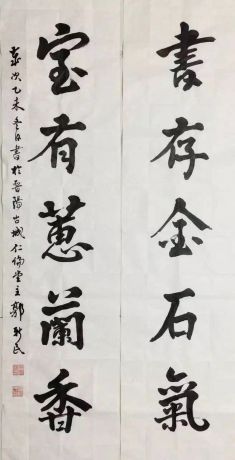 書存金石氣
室有蕙蘭香
歲次乙未冬月書於晉陽古城仁倫堂主郭新民